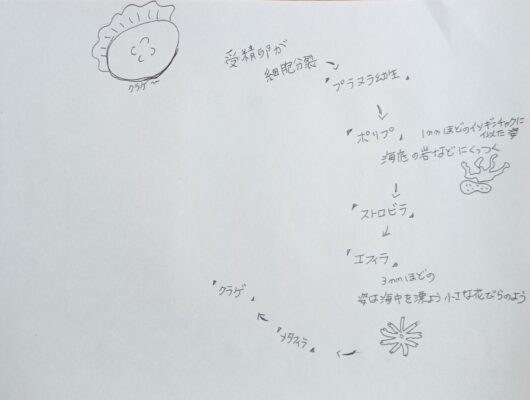 クラゲ
受精卵が
細胞分裂
『プラヌラ幼生』
『ポリプ』
1mmほどのイソギンチャクに
似た姿
海底の岩などにくっつく
『ストロビラ』
『エフィラ』
3mmほどの
姿は海中を漂よう小さな花びらのよう
『メタフィラ』
『クラゲ』